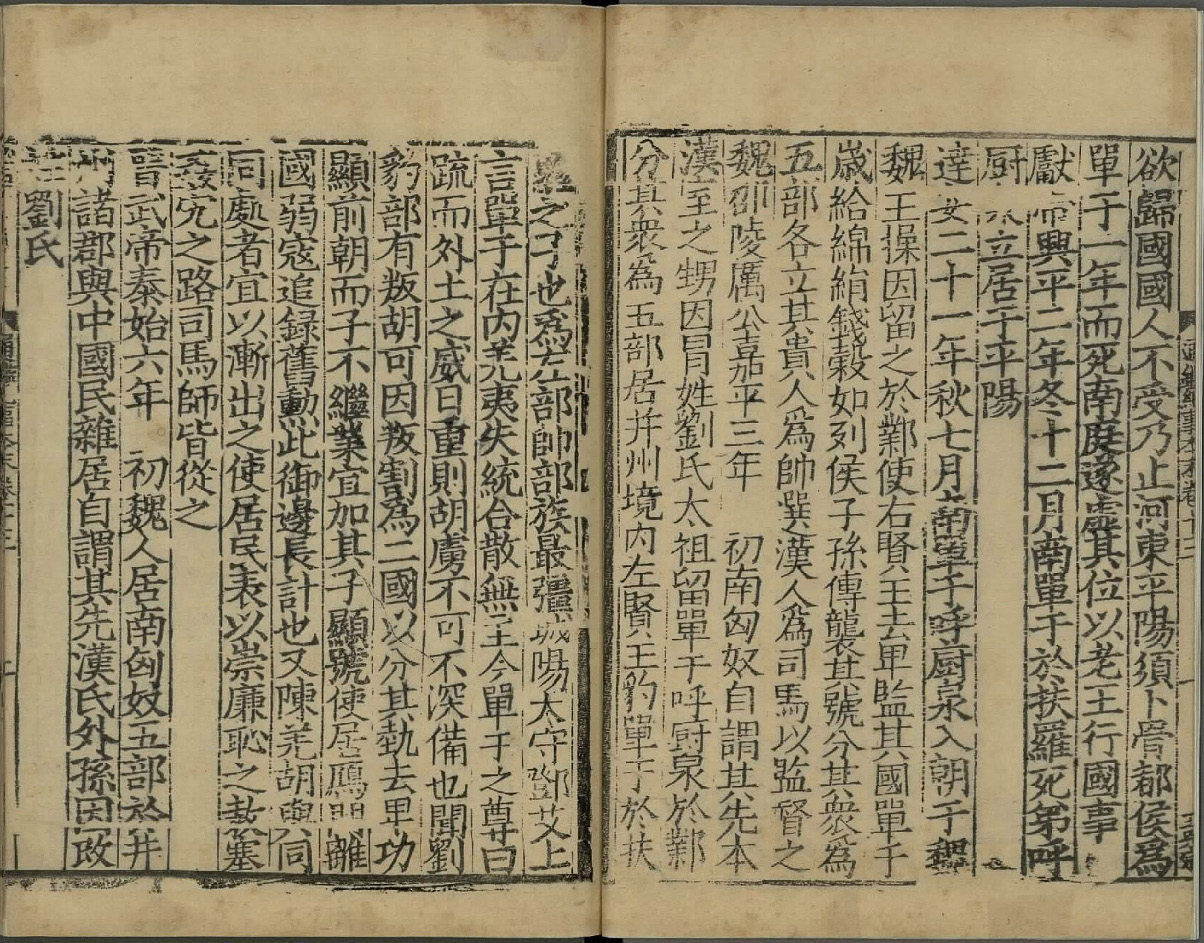 欲歸國國人不受乃止河東平陽須卜骨都侯爲
單于一年而死南庭遂虛其位以老王行國事
獻帝興平二年冬十二月南單于於扶羅死弟呼
厨泉立居于平陽
建安二十一年秋七月南單于呼厨泉入朝于魏
魏王操因留之於鄴使右賢王去卑監其國單于
歳給綿絹錢穀如列侯子孫傳襲其號分其衆爲
五部各立其貴人爲帥選漢人爲司馬以監督之
魏邵陵厲公嘉平三年 初南匈奴自謂其先本
漢室之甥因冒姓劉氏太祖留單于呼厨泉於鄴
分其衆爲五部居并州境内左賢王豹單于於扶
羅之子也爲左部帥部族最彊城陽太守鄧艾上
言單于在内羌夷失統合散無主今單于之尊日
疏而外土之威日重則胡虜不可不深備也聞劉
豹部有叛胡可因叛割爲二國以分其埶去卑功
顯前朝而子不繼業宜加其子顯號使居鴈門離
國弱寇追録舊勳此御邊長計也又陳羌胡與民
同處者宜以漸出之使居民表以崇廉恥之教塞
姦宄之路司馬師皆從之
晉武帝泰始六年 初魏人居南匈奴五部於并
州諸郡與中國民雜居自謂其先漢氏外孫因改
姓劉氏